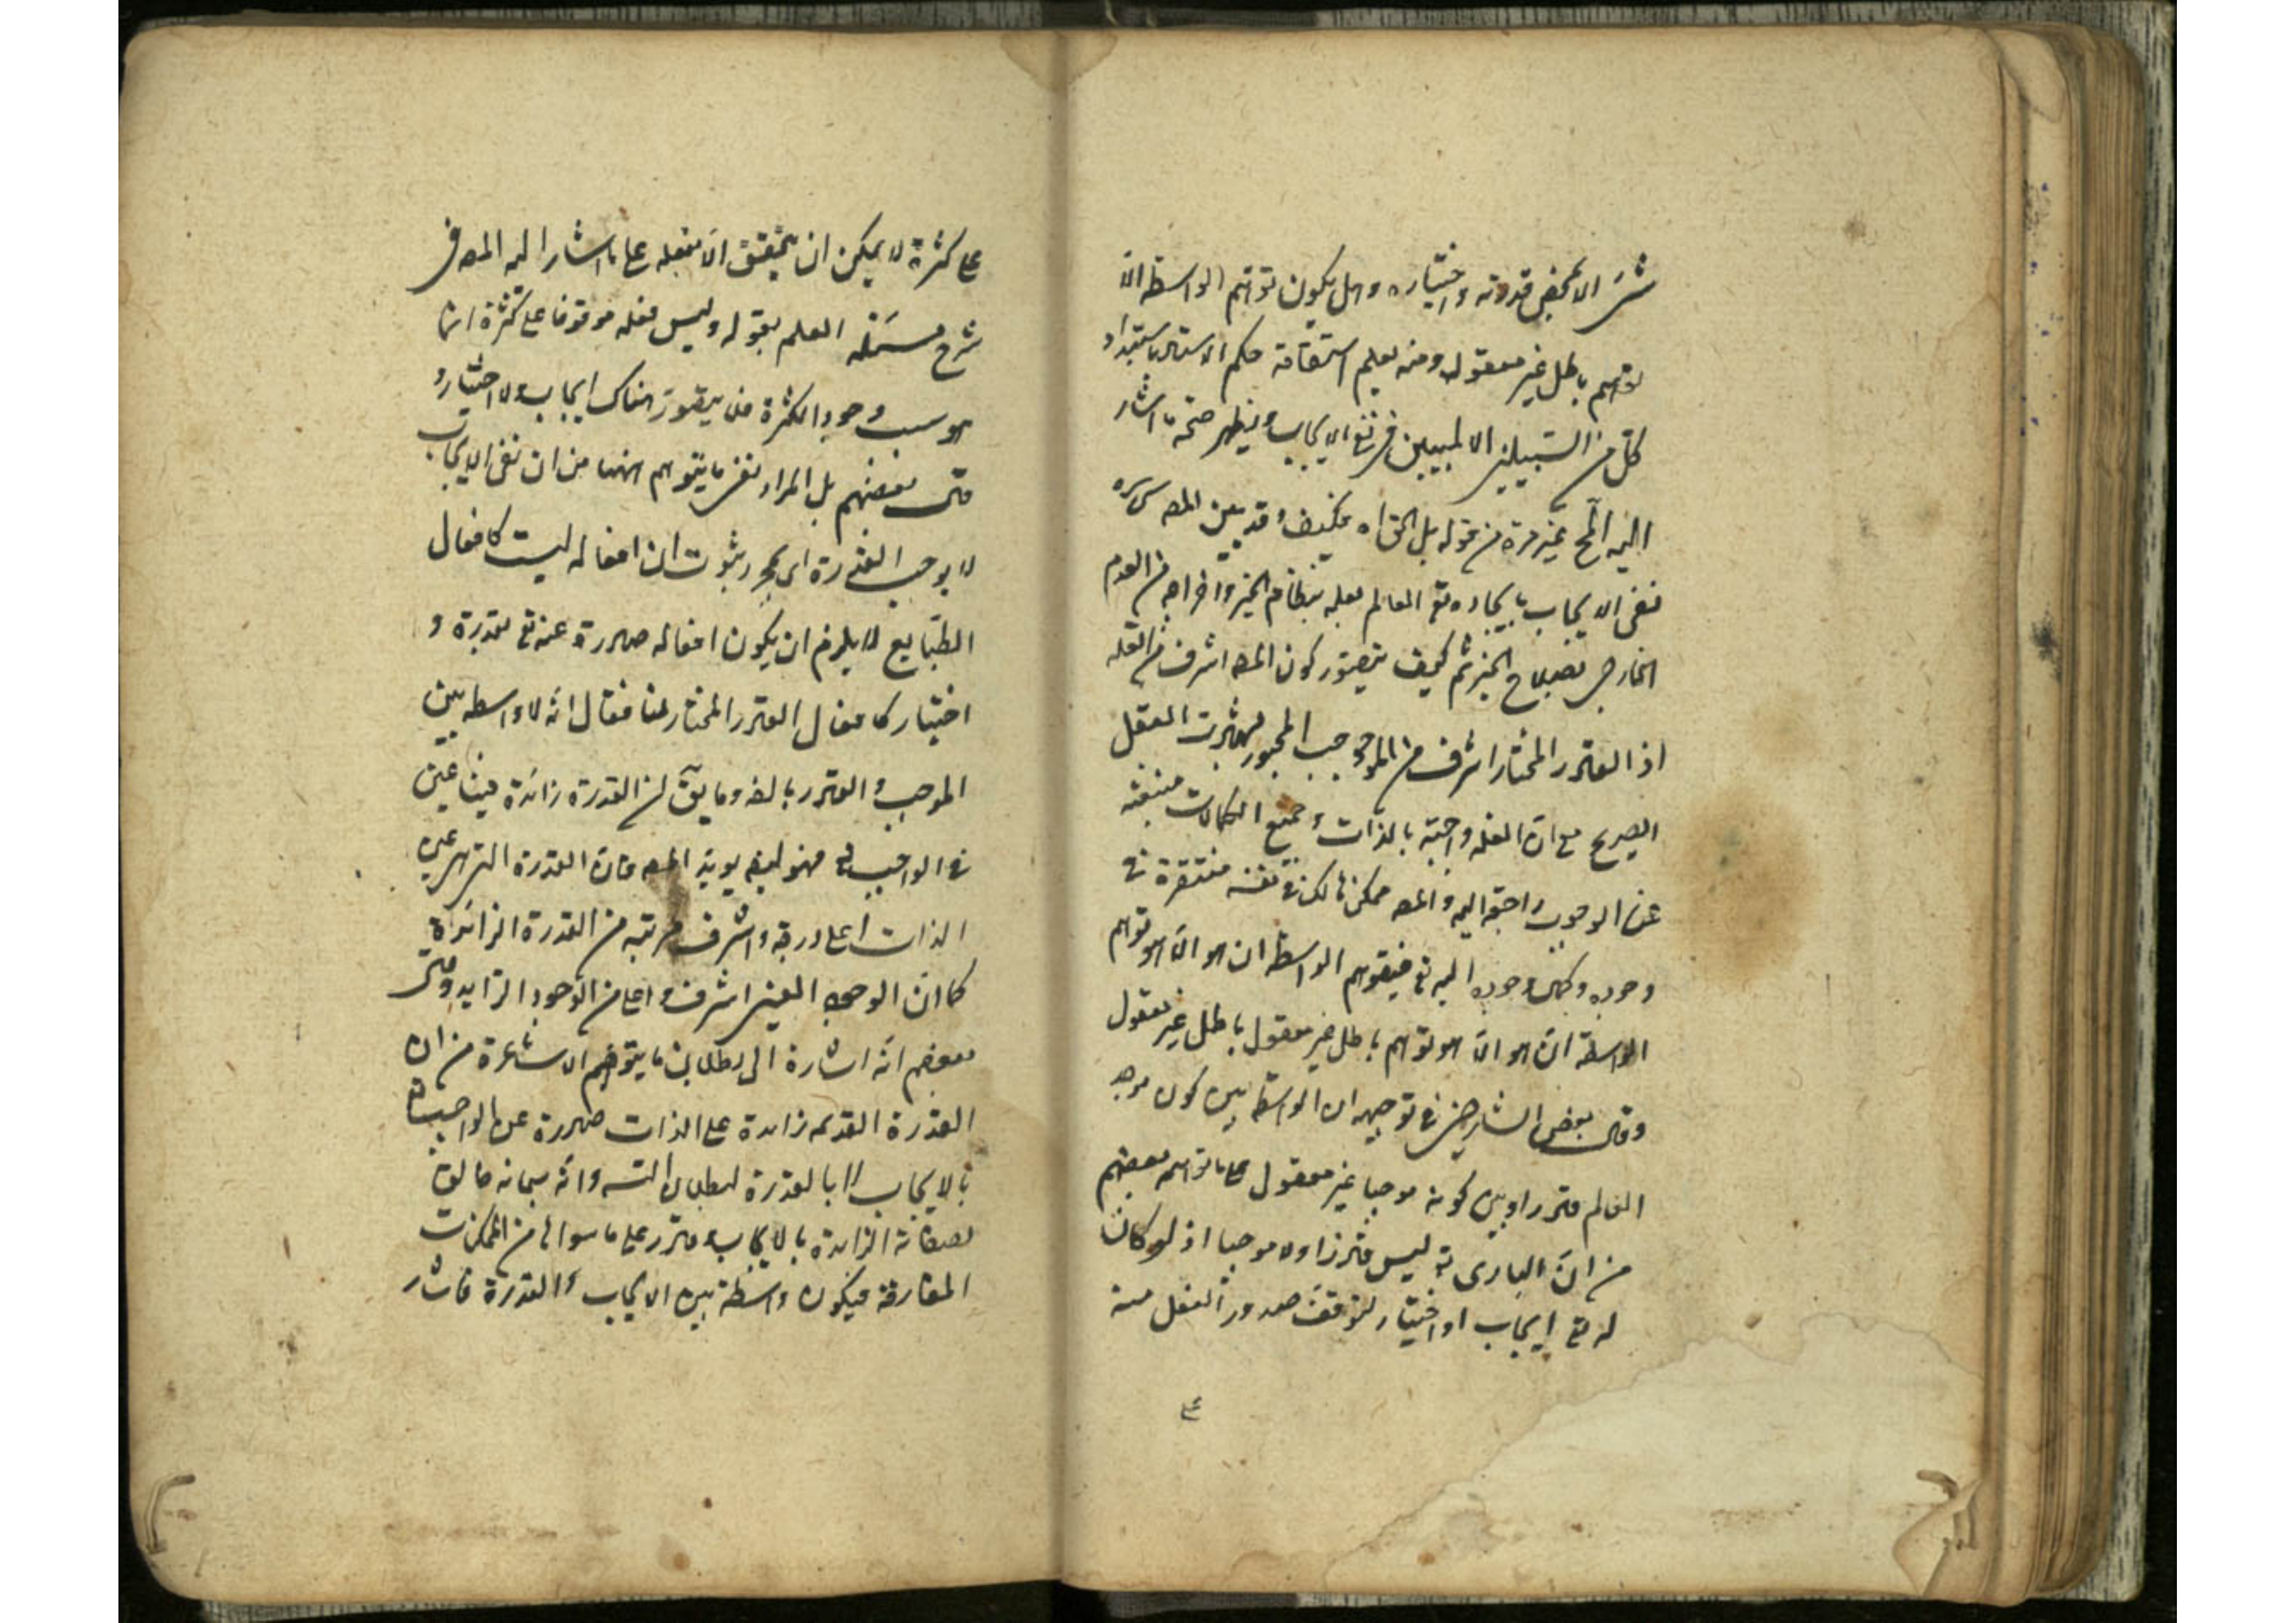 شئ الا بمحض قدرته واختياره وهل يكون توهم الواسطة الا
توهم باطل غير معقول ومنه يعلم استقامة حكم الاستاد باستبداد
كل من السبيلين في نفي الايجاب ويظهر صحة ما اشار
اليه غير مرة من قوله بل الحق اه فكيف وقد بين المص سره
نفى الايجاب بايجاده تع العالم بعلمه بنظام الخير واخراجه من العدم
الخارجى بصلاح الخير ثم كيف يتصور كون المص اشرف من العلة
اذ القادر المختار اشرف من الموجب المجبور بشهادت العقل
الصريح مع ان العلة واجبة بالذات وجميع الكمالات منبعثة
عن الوجوب راجعة اليه والمص ممكن هالك في نفسه مفتقرة في
وجوده وكمال وجوده اليه تع فيتوهم الواسطة ان هو الا هو توهم
الواسطة ان هو الا هو توهم باطل غير معقول باطل غير معقول
وقال بعض الشارحين في توجيهه ان الواسطة بين كون موجد
العالم قادرا وبين كونه موجبا غير معقول على ما توهمه بعضهم
من ان البارى تع ليس قادرا ولا موجبا اذ لو كان
له تع ايجاب او اختيار لتوقف صدور الفعل منه
على كثرة لا يمكن ان يتحقق الا بفعله على ما اشار اليه المص في
شرح مسئلة العلم بقوله وليس فعله موقوفا على كثرة انما
هو سبب وجود الكثرة فلا يتصور هناك ايجاب ولا اختيار و
قال بعضهم بل المراد نفى ما يتوهم ههنا من ان نفى الايجاب
لا يوجب القدرة اى بمجرد ثبوت ان افعاله ليست كافعال
الطبايع لا يلزم ان يكون افعاله صادرة عنه تع بقدرة و
اختيار كافعال القادر المختار لنا فقال انه لا واسطة بين
الموجب والقادر بالض وما يق ان القدرة زائدة فينا عين
في الواجب تع فهو ليس يؤيد المص فان القدرة التى هي عين
الذات اعلى درجة واشرف مرتبة من القدرة الزائدة
كما ان الوجود العينى اشرف واعلى من الوجود الزايد وقال
بعضهم انه اشارة الى بطلان ما يتوهم الاشاعرة من ان
القدرة القديمة زايدة على الذات صادرة عن الواجب تع
بالايجاب لا بالقدرة لبطلان التسه وانه سبحانه خالق
لصفاته الزايدة بالايجاب وقادر على ما سواها من الممكنات
المفارقة فيكون واسطة بين الايجاب والقدرة فاشار